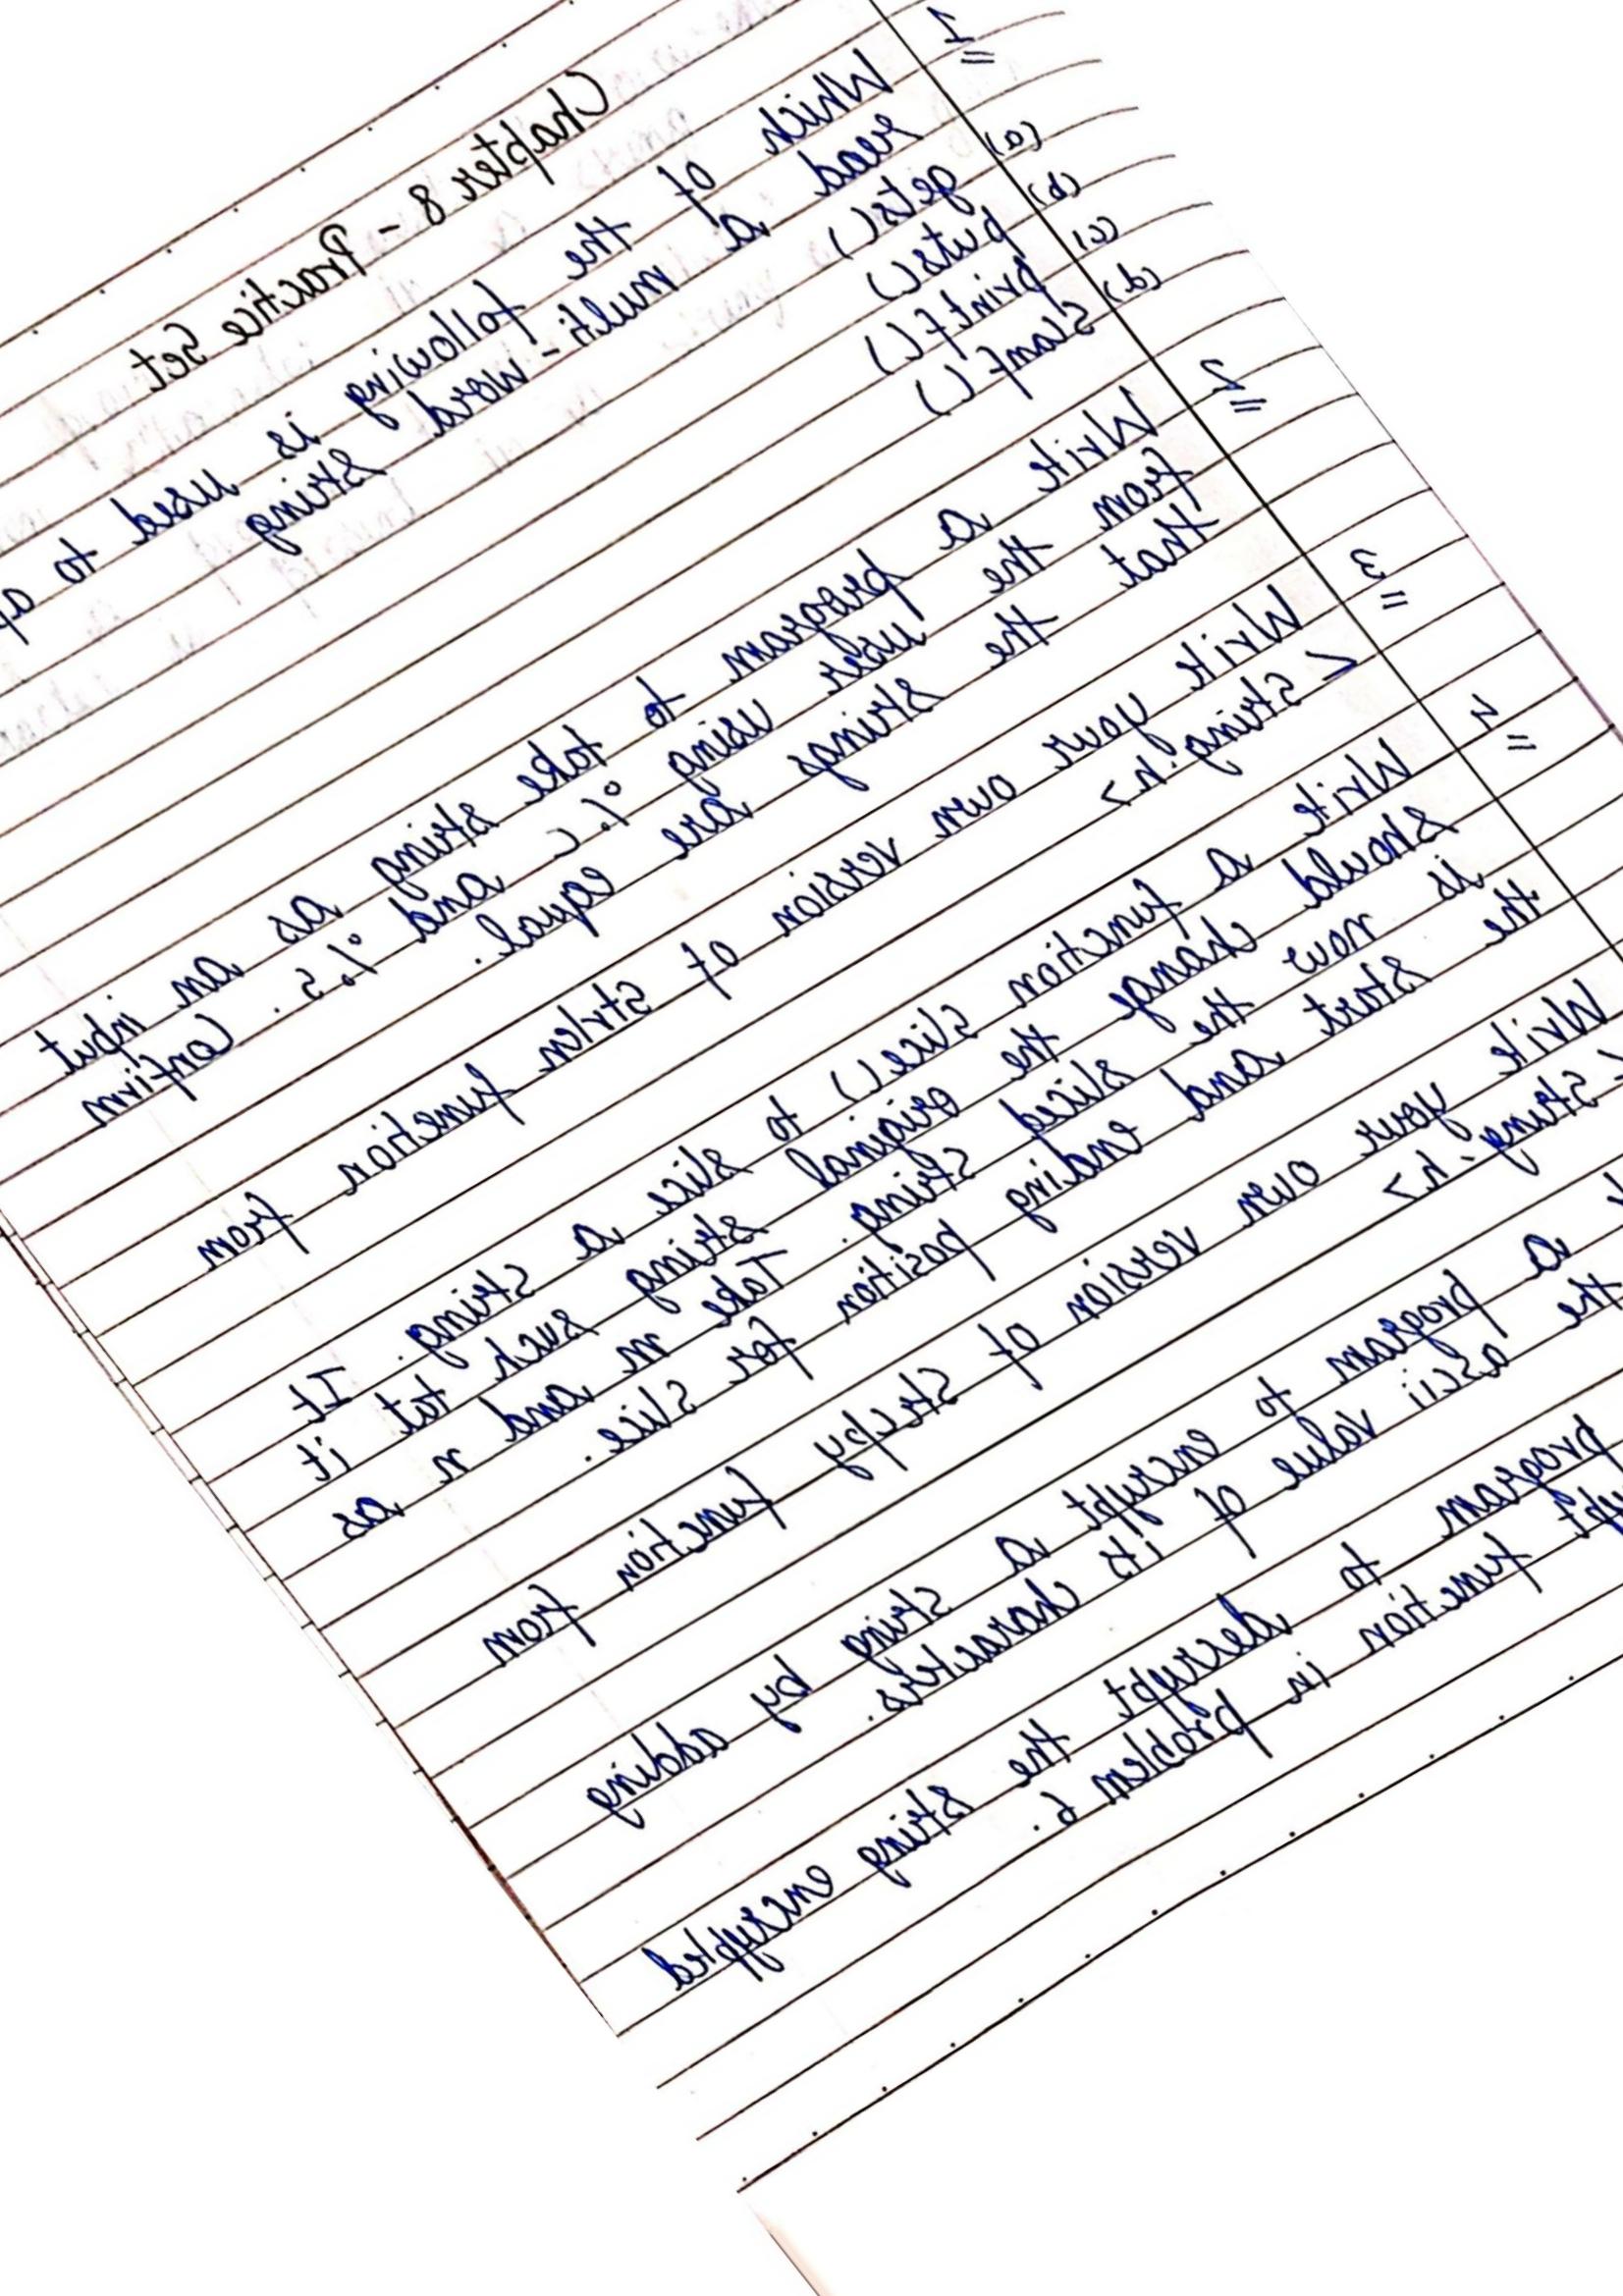 Chapter 8 - Practice Set
1 Which of the following is used to
read a multi-word string
(a) gets()
(b) puts()
(c) printf()
(d) Scanf()
2 Write a program to take string as an input
from the user using %c and %s. Confirm
that the strings are equal.
3 Write your own version of strlen function from
<string.h>
4 Write a function slice() to slice a string. It
should change the original string such tat it
is now the sliced string. Take m and n as
the start and ending position for slice.
Write your own version of strcpy function from
<string.h>
a program to encrypt a string by adding
the ascii value of its characters.
program to decrypt the string encrypted
function in problem 6.